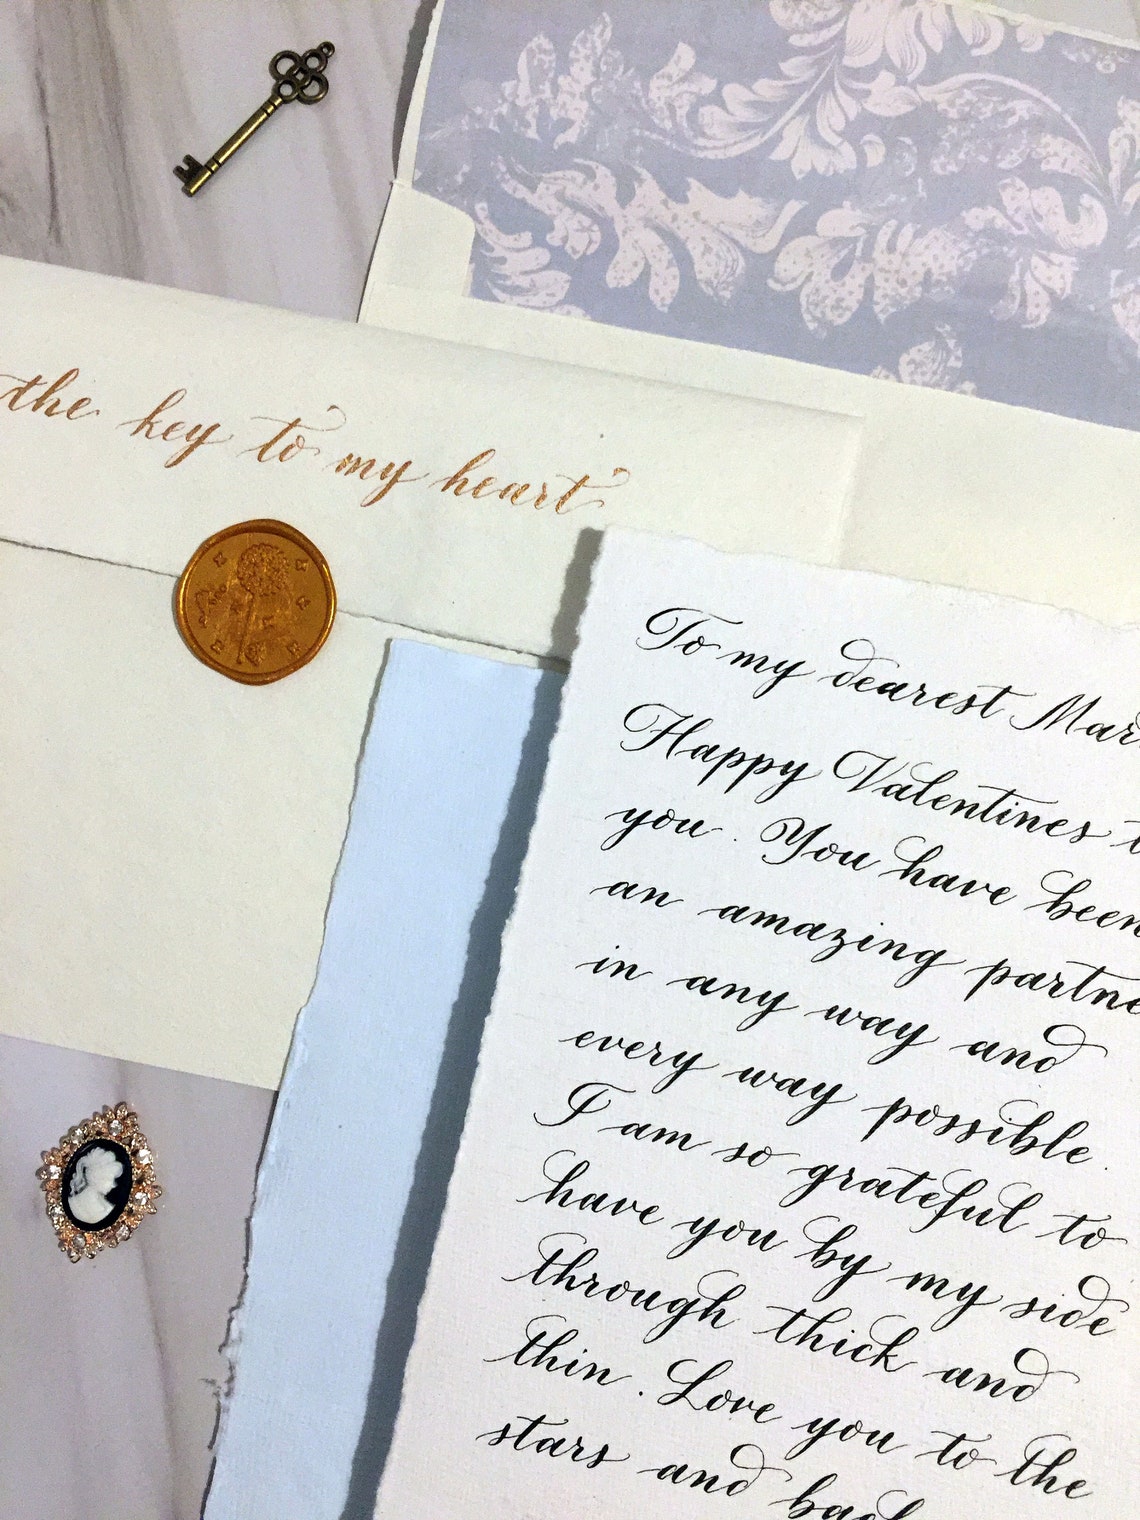 the key to my heart
To my dearest Mar
Happy Valentines t
you. You have been
an amazing partne
in any way and
every way possible.
I am so grateful to
have you by my side
through thick and
thin. Love you to the
stars and back